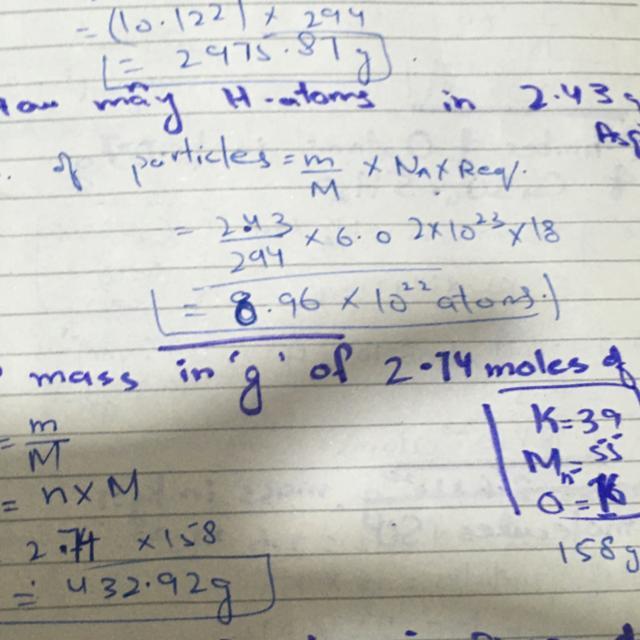 = (10.122) × 294
= 2975.87 g
How may H-atoms in 2.43 g
Asp
. of particles = m/M × NA × Req.
= 2.43/294 × 6.02×10²³ × 18
= 8.96 × 10²² atoms.
mass in 'g' of 2.74 moles of
= m/M
K = 39
Mn = 55
= n × M
O = 16
2.74 × 158
158 g
= 432.92 g